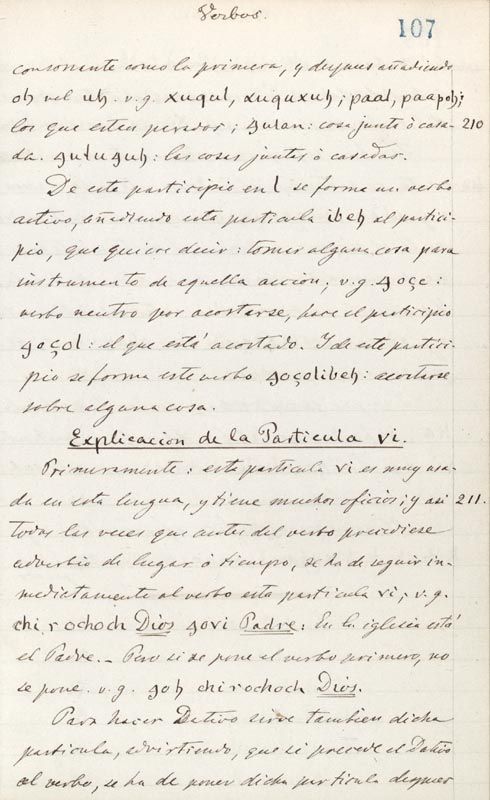 Verbos.
107
consonante como la primera, y despues añadiendo
oh vel uh. v.g. xuqul, xuquxuh; paal, paapoh;
los que esten parados; ꜫulan: cosa junta ò casa- 210
da. ꜫuluꜫuh: las cosas juntas ò casadas.
De este participio en l se forma un verbo
activo, añadiendo esta particula ibeh al partici-
pio, que quiere decir: tomar alguna cosa para
instrumento de aquella accion; v.g. ꜫoçe:
verbo neutro por acostarse, hace el participio
ꜫoçol: el que está acostado. Y de este partici-
pio se forma este verbo ꜫoçolibeh: acostarse
sobre alguna cosa.
Explicacion de la Particula vi.
Primeramente: esta particula vi es muy usa-
da en esta lengua, y tiene muchos oficios; y asi 211.
todas las veces que antes del verbo precediese
adverbio de lugar ò tiempo, se ha de seguir in-
mediatamente al verbo esta particula vi; v.g.
chi rochoch Dios ꜫovi Padre: En la iglesia está
el Padre. – Pero si se pone el verbo primero, no
se pone. v.g. ꜫoh chi rochoch Dios.
Para hacer Dativo sirve tambien dicha
particula, advirtiendo, que si precede el Dativo
al verbo, se ha de poner dicha particula despues